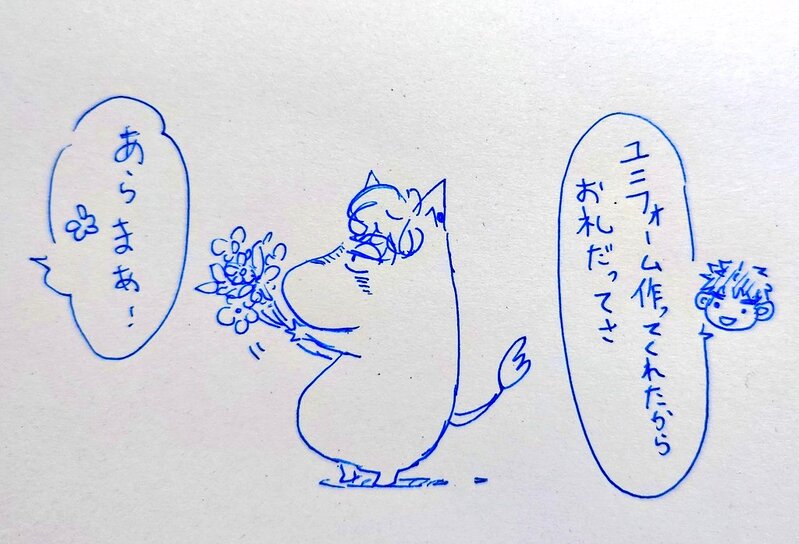 ユニフォーム作ってくれたから
お札だってさ
あらまぁ!